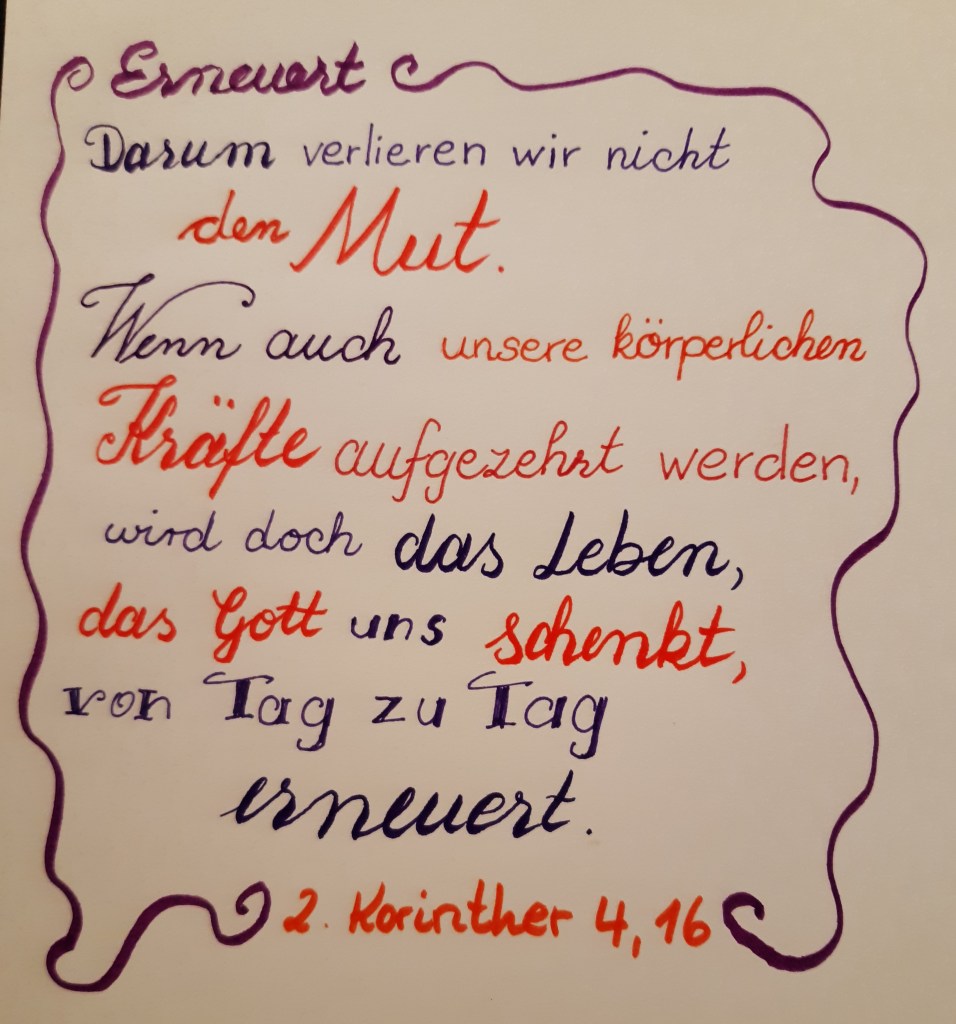 Erneuert
Darum verlieren wir nicht
den Mut.
Wenn auch unsere körperlichen
Kräfte aufgezehrt werden,
wird doch das Leben,
das Gott uns schenkt,
von Tag zu Tag
erneuert.
2. Korinther 4, 16